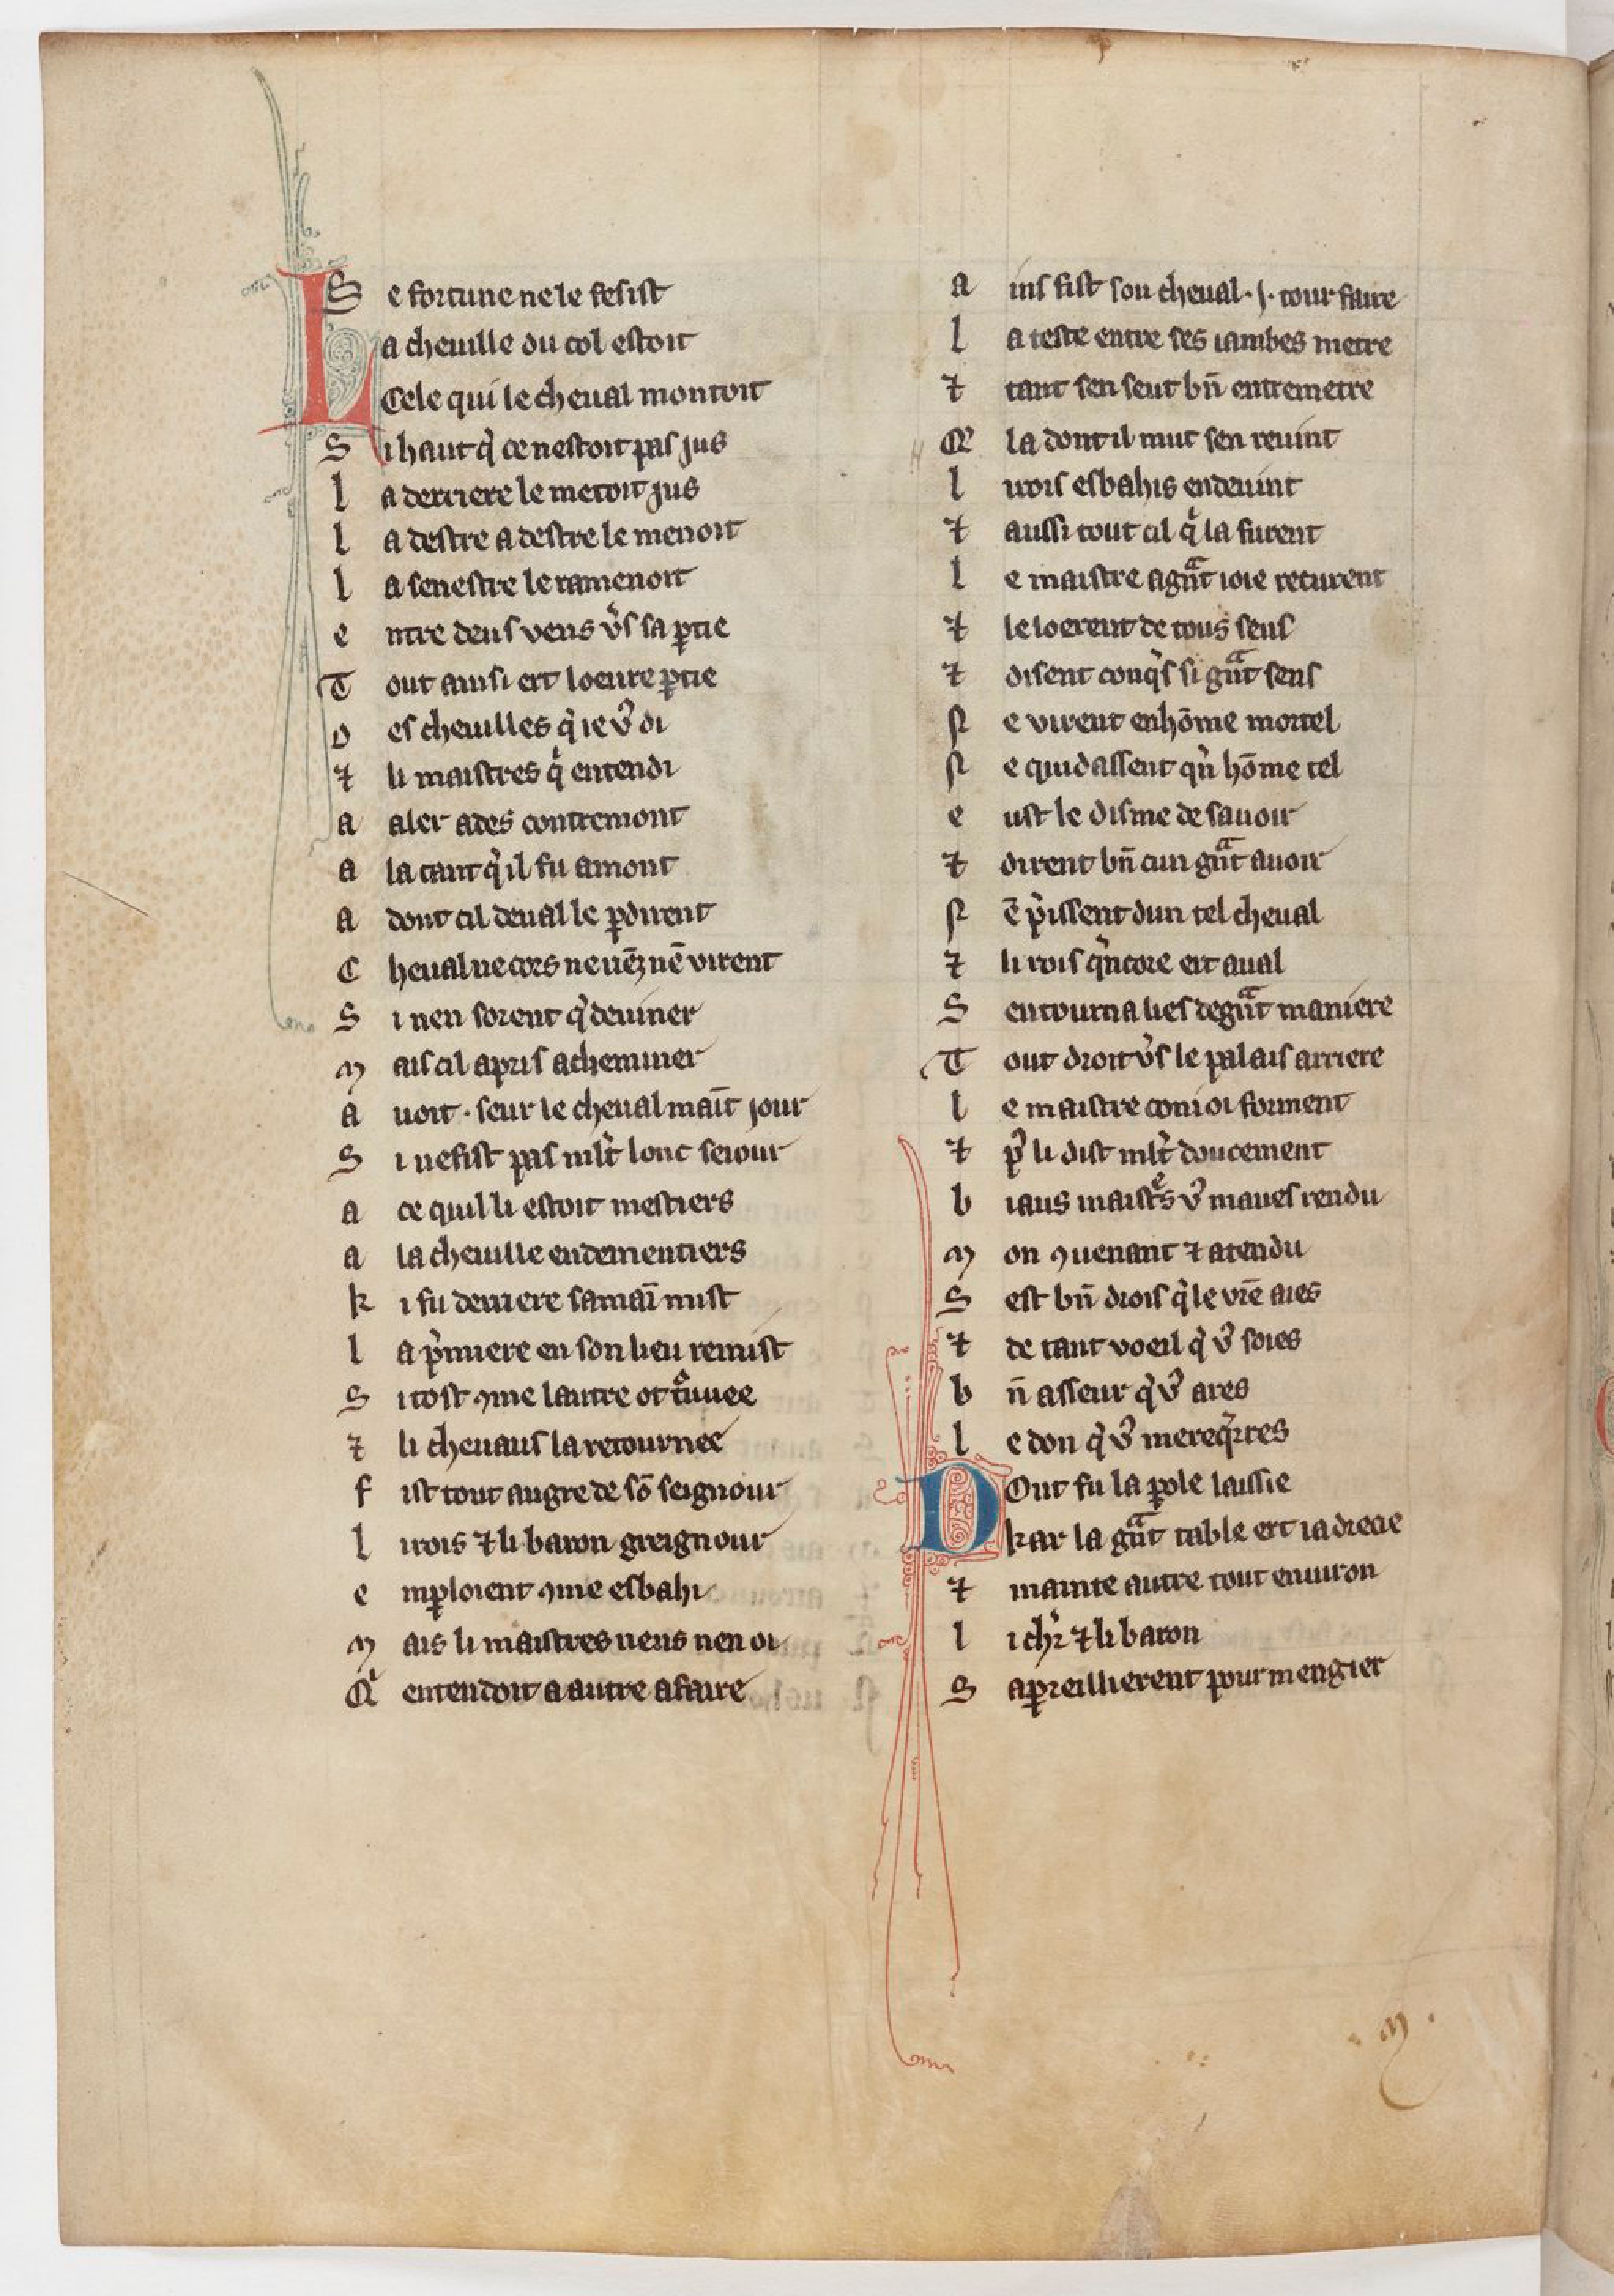 Se fortune ne le fesist
La cheuille du col estoit
Cele qui le cheual montoit
Si haut q̓ ce nestoit pas jus
la derriere le metoit jus
la destre a destre le menoit
la senestre le ramenoit
entre deus vens v̓s sa ꝑtie
Tout ainsi ert loeure ꝑtie
Des cheuilles q̓ ie v̓ di
⁊ li maistres qͥ entendi
a aler ades contremont
ala tant q̓ il fu amont
adont cil deual le ꝑdirent
Cheual ne cors ne uẽz nẽ virent
Si nen sorent q̓ deuiner
Mais cil apris a cheminer
auoit · seur le cheual maīt jour
Si ne fist pas ml̓t lonc seiour
a ce quil li estoit mestiers
a la cheuille endementiers
ki fu derriere sa maī mist
la p̓miere en son lieu remist
Si tost ꝯme lautre ot tͦuuee
⁊ li cheuaus la retournee
fist tout au gre de sõ seignour
li rois ⁊ li baron greignour
en ꝑloient ꝯme esbahi
Mais li maistres nens nen oi
Qͥ entendoit a autre afaire
ains fist son cheual · j · tour faire
la teste entre ses iambes metre
⁊ tant sen seut bn̄ entremetre
Q̓ la dont il mut sen reuint
li rois esbahis en deuint
⁊ aussi tout cil qͥ la furent
le maistre a gn̄ᵃt ioie recurent
⁊ le loerent de tous sens
⁊ disent conq̓s si gn̄ᵃt sens
Ne virent en hõme mortel
Ne quidassent qu̓n hõme tel
eust le disme de sauoir
⁊ dirent bn̄ cun gn̄ᵃt auoir
Nẽ p̓issent dun tel cheual
⁊ li rois q̓ncore ert aual
Sen tourna lies de gn̄ᵃt maniere
Tout droit v̓s le palais arriere
le maistre conioi forment
⁊ p̓ li dist ml̓t doucement
biaus maistͤs v̓ maues rendu
Mon ꝯuenant ⁊ atendu
Sest bn̄ drois q̓ le vr̄e aies
⁊ de tant voeil q̓ v̓ soies
bn̄ asseur q̓ v̓ ares
le don q̓ v̓ me req̓rres
Dont fu la ꝑole laissie
kar la gn̄ᵃt table ert ia drecie
⁊ mainte autre tout enuiron
li chr̓ ⁊ li baron
Sapreillierent pour mengier
M